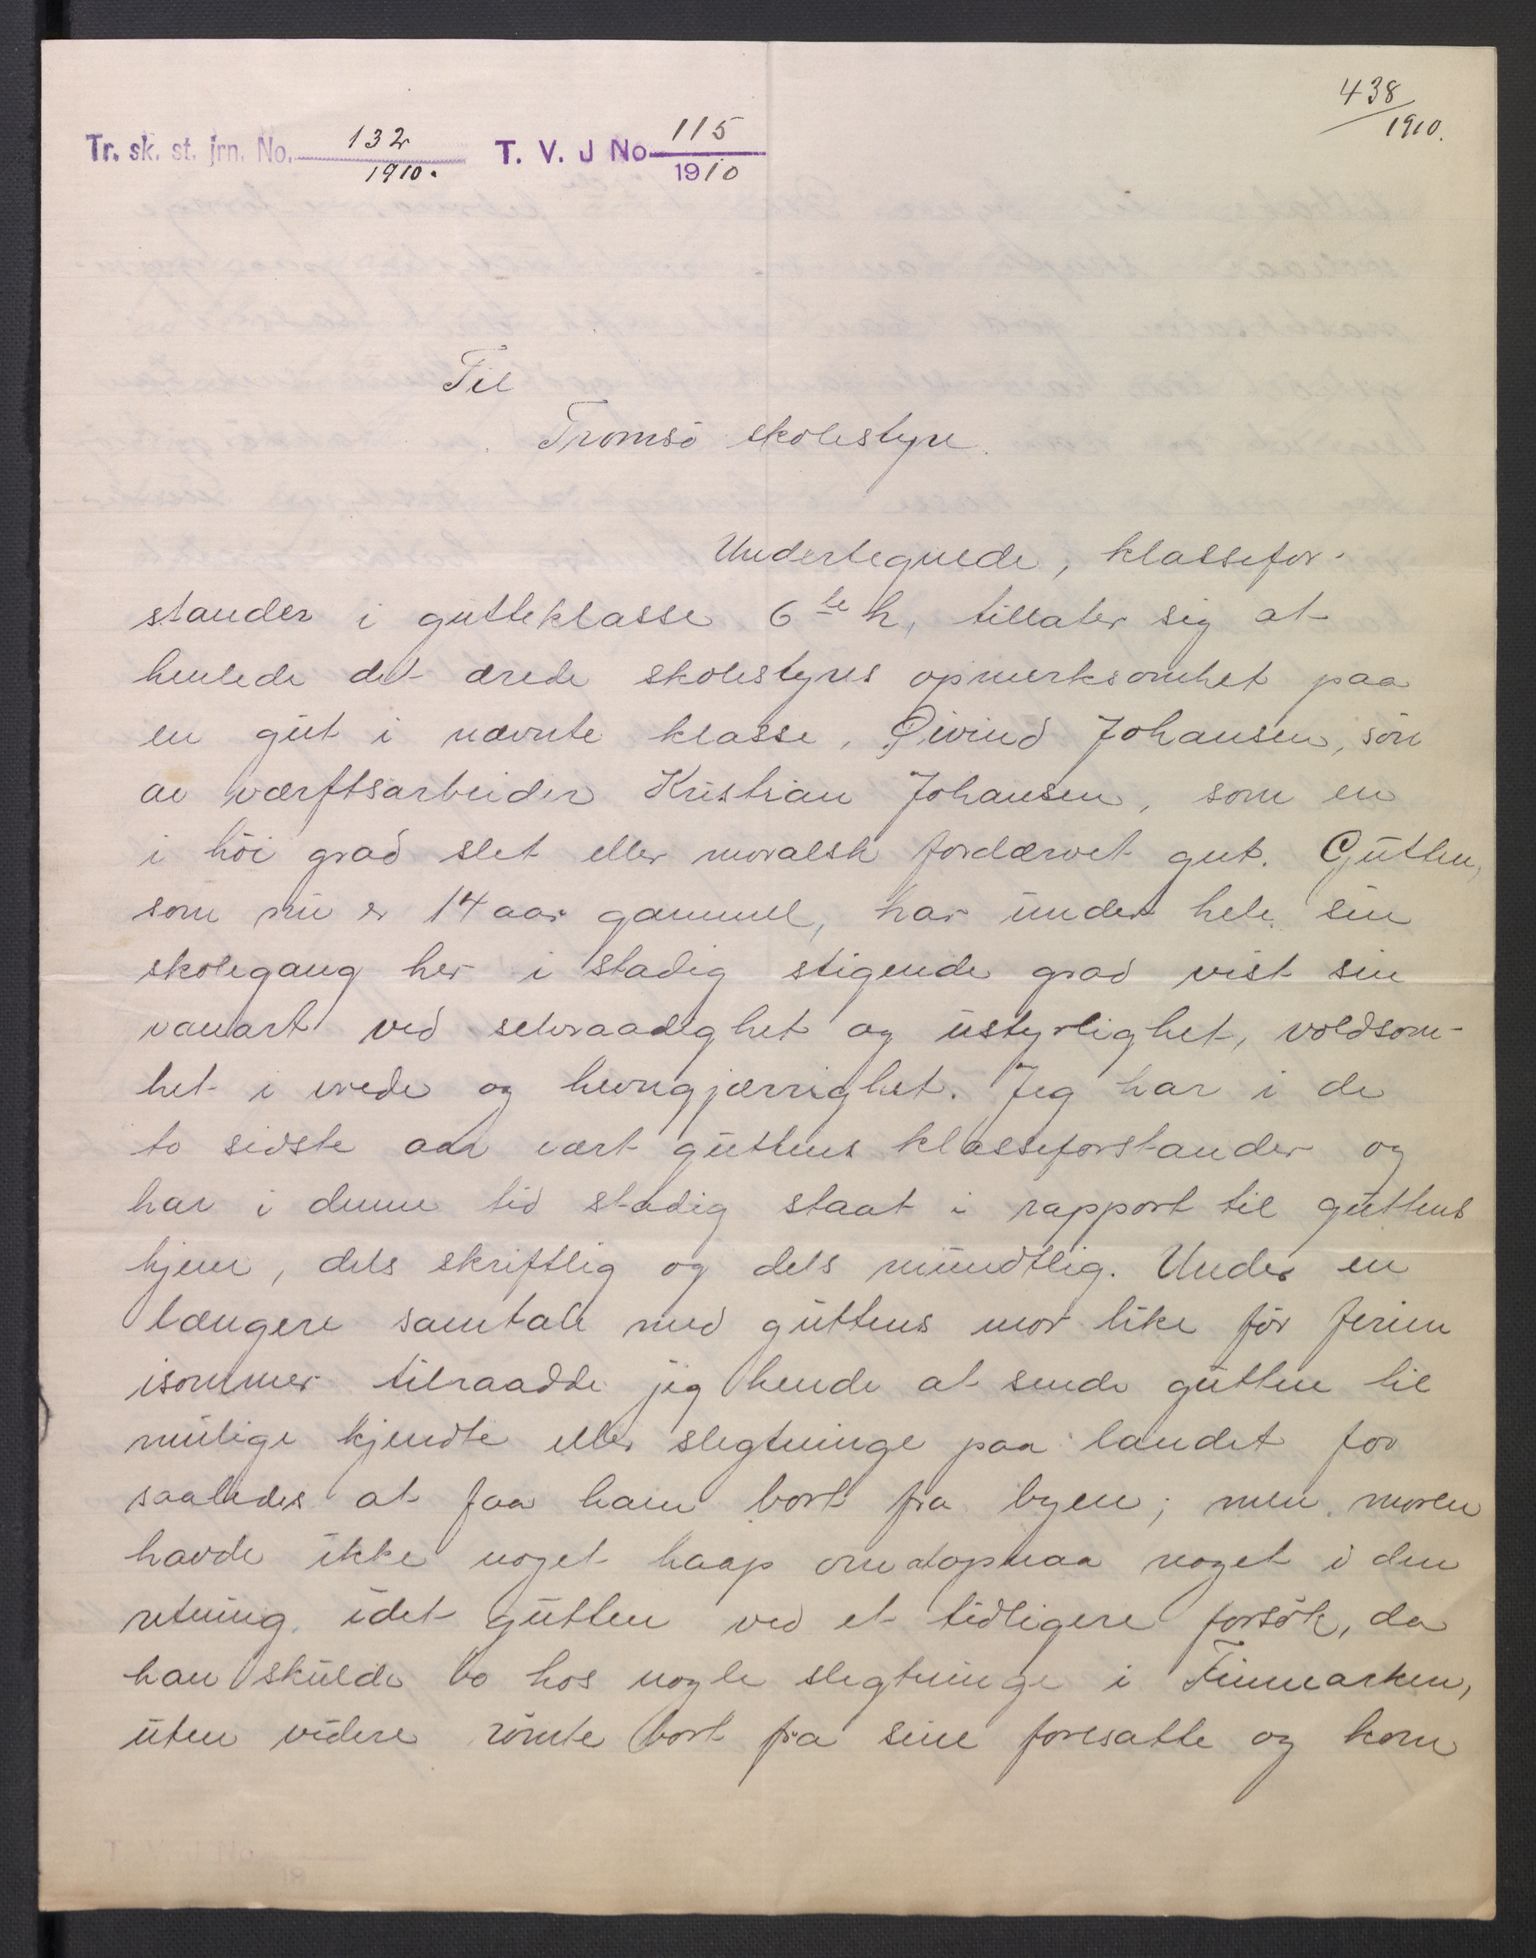 438
1910.
Tr. sk. st. jrn. No. 132
1910.
T. V. J No 115
1910
Til
Tromsö skolestyre.
Undertegnede, klassefor-
stander i gutteklasse 6te h, tillater sig at
henlede det ærede skolestyres opmerksomhet paa
en gut i nævnte klasse, Øivind Johansen, sön
av værftsarbeider Kristian Johansen, som en
i höi grad slet eller moralsk fordærvet gut. Gutten,
som nu er 14 aar gammel, har under hele sin
skolegang her i stadig stigende grad vist sin
vanart ved selvraadighet og ustyrlighet, voldsom-
het i vrede og hevngjærrighet. Jeg har i de
to sidste aar vært guttens klasseforstander og
har i denne tid stadig staat i rapport til guttens
hjem, dels skriftlig og dels mundtlig. Under en
længere samtale med guttens mor like för ferien
isommer tilraadde jeg hende at sende gutten til
mulige kjendte eller slegtninge paa landet for
saaledes at faa ham bort fra byen; men moren
havde ikke noget haap om at opnaa noget i den
retning, idet gutten ved et tidligere forsök, da
han skulde bo hos nogle slegtninge i Finmarken,
uten videre römte bort fra sine foresatte og kom